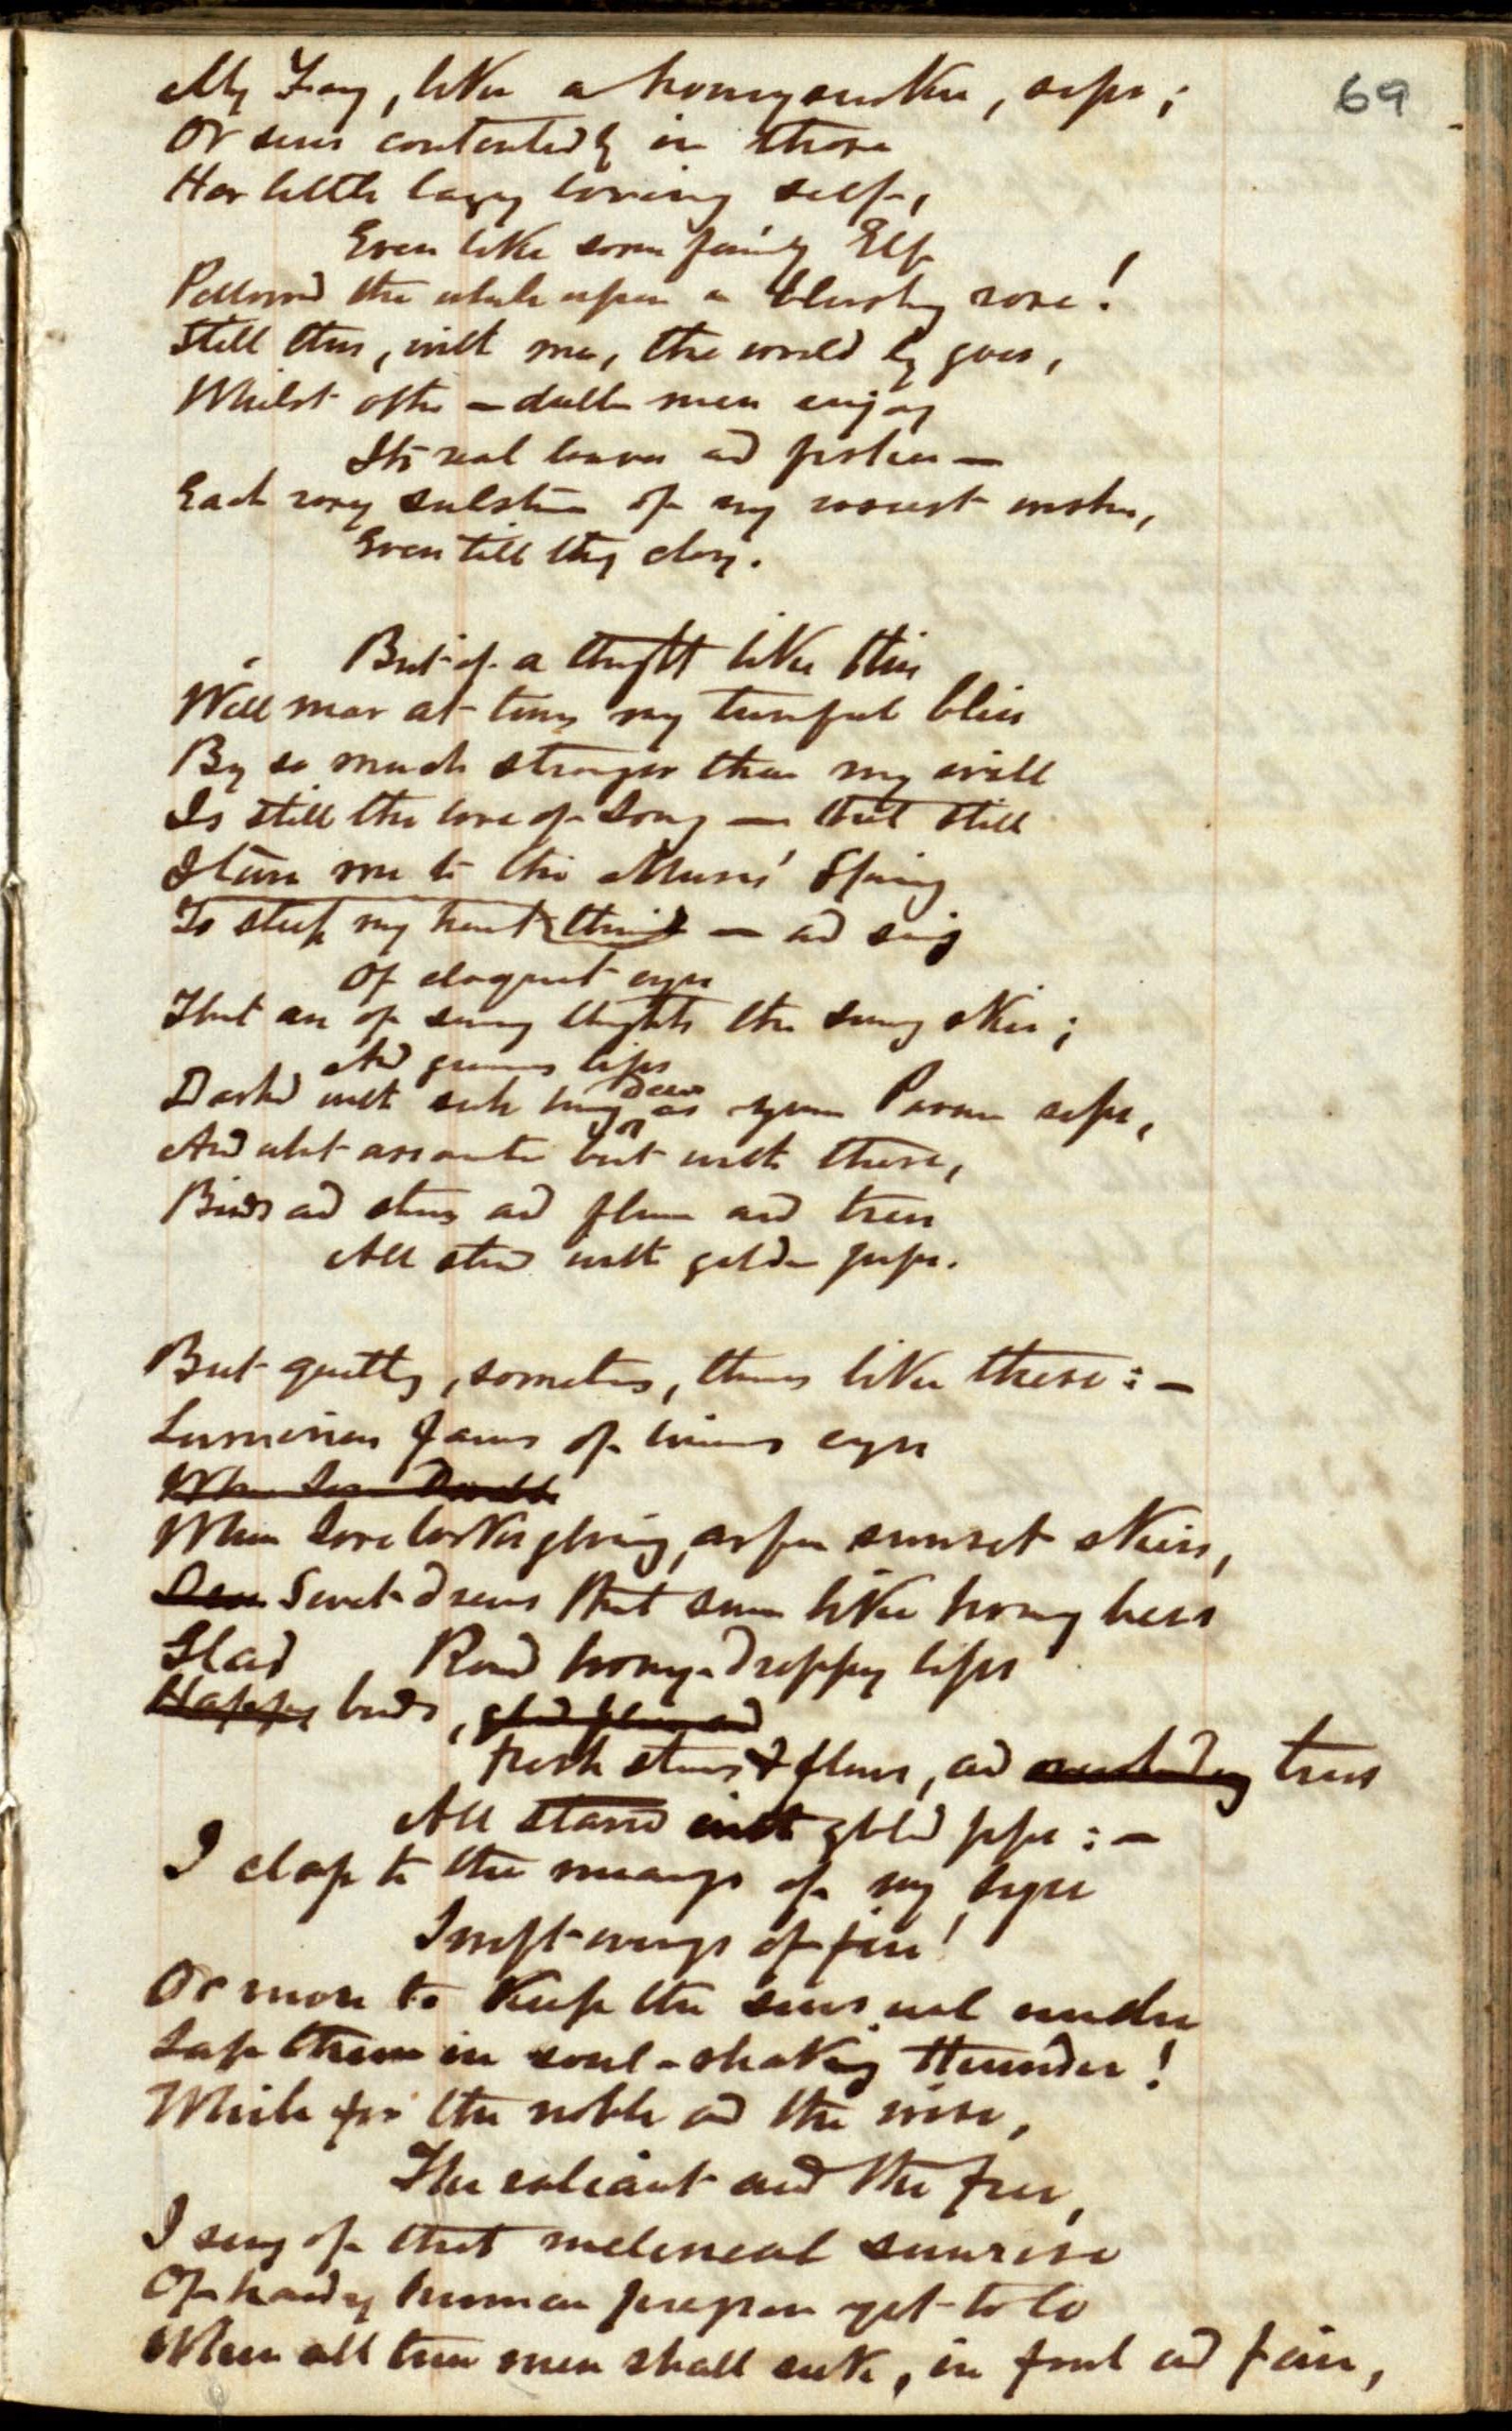 69
My Fay, like a honeysucker, sips;
Or suns contentedly in those
Her little lazy loving self,
Even like some fairy Elf
Pillowed the while upon a blushing rose!
Still thus, with me, the world by goes,
Whilst other — duller men enjoy
Its real loaves and fishes —
Each rosy substance of my rosiest wishes,
Even till they cloy.
But if a thought like this
Will mar at times my tuneful bliss
By so much stronger than my will
Is still the love of Song — that still
I turn me to the Muses' Spring
To steep my heart therein — and sing
Of eloquent eyes
That are of sunny thoughts the sunny skies;
And generous lips
Dashed with such honey dew as young Passion sips,
And what assorteth best with these,
Birds and stars and flowers and trees
All stored with golden pips.
But quickly, sometimes, themes like these: —
Luminous of winsome eyes
When Love
When Love looks glowing, as from sunset skies,
Dew Sweet dreams that swim like honey bees
Glad Round honey-droppy lips
Happy birds, glad flowers and
Fresh stars & flowers, and trees
All starred with golden pips: —
I clap to the meanings of my lyre
Swift wings of fire!
Or more to keep the sensual under
Lap them in soul-shaking thunder!
While for the noble and the wise,
The valiant and the free,
I sing of that millenial sunrise
Of hardy human progress yet to be
When all true men shall seek, in foul and fair,